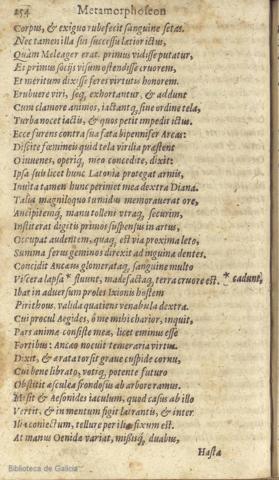 254 Metamorphoseon
Corpus, & exiguo rubefecit sanguine setas.
Nec tamen illa sui successu lætior ictus,
Quàm Meleager erat. primus vidisse putatur,
Et primus socijs visum ostendisse cruorem,
Et meritum dixisse feres virtutis honorem.
Erubuere viri, seq, exhortantur, & addunt
Cum clamore animos, iactantq, sine ordine tela,
Turba nocet iactis, & quos petit impedit ictus.
Ecce furens contra sua fata bipennifer Arcas:
Discite fœmineis quid tela virilia præstent
O iuuenes, operiq, meo concedite, dixit:
Ipsa suis licet hunc Latonia protegat armis,
Inuita tamen hunc perimet mea dextra Diana.
Talia magniloquo tumidus memorauerat ore,
Ancipitemq, manu tollens vtraq, securim,
Institerat digitis primos suspensus in artus,
Occupat audentem, quaq, est via proxima leto,
Summa ferus geminos direxit ad inguina dentes.
Concidit Ancæus glomerataq, sanguine multo
Viscera lapsa * fluunt, madefactaq, terra cruore est. * cadunt,
Ibat in aduersum proles Ixionis hostem
Pirithous. valida quatiens venabula dextra.
Cui procul Aegides, ô me mihi charior, inquit,
Pars animæ consiste meæ, licet eminus esse
Fortibus: Ancæo nocuit temeraria virtus.
Dixit, & ærata torsit graue cuspide cornu,
Cui bene librato, votiq, potente futuro
Obstitit æsculea frondosus ab arbore ramus.
Misit & Aesonides iaculum, quod casus ab illo
Vertit, & in
mentum figit latrantis, & inter
Ilia coniectum, tellure per ilia fixum est.
At manus Oenidæ variat, missisq, duabus,
Hasta
Biblioteca de Galicia